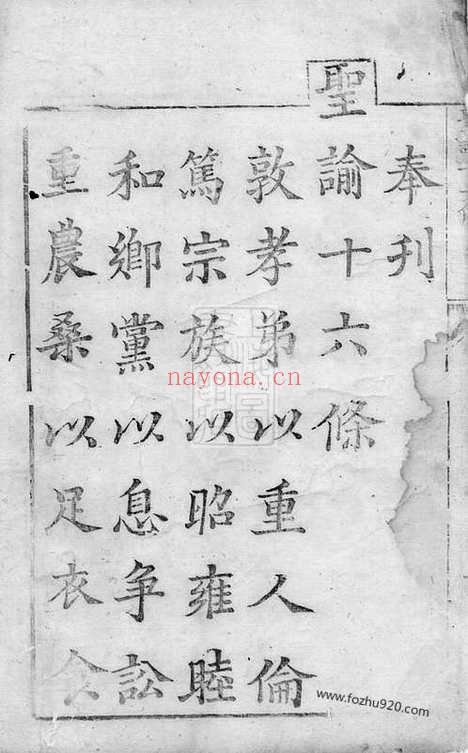 奉刊
聖諭十六條
敦孝弟以重人倫
篤宗族以昭雍睦
和鄉黨以息爭訟
重農桑以足衣食
nayona.cn
www.fozhu920.com